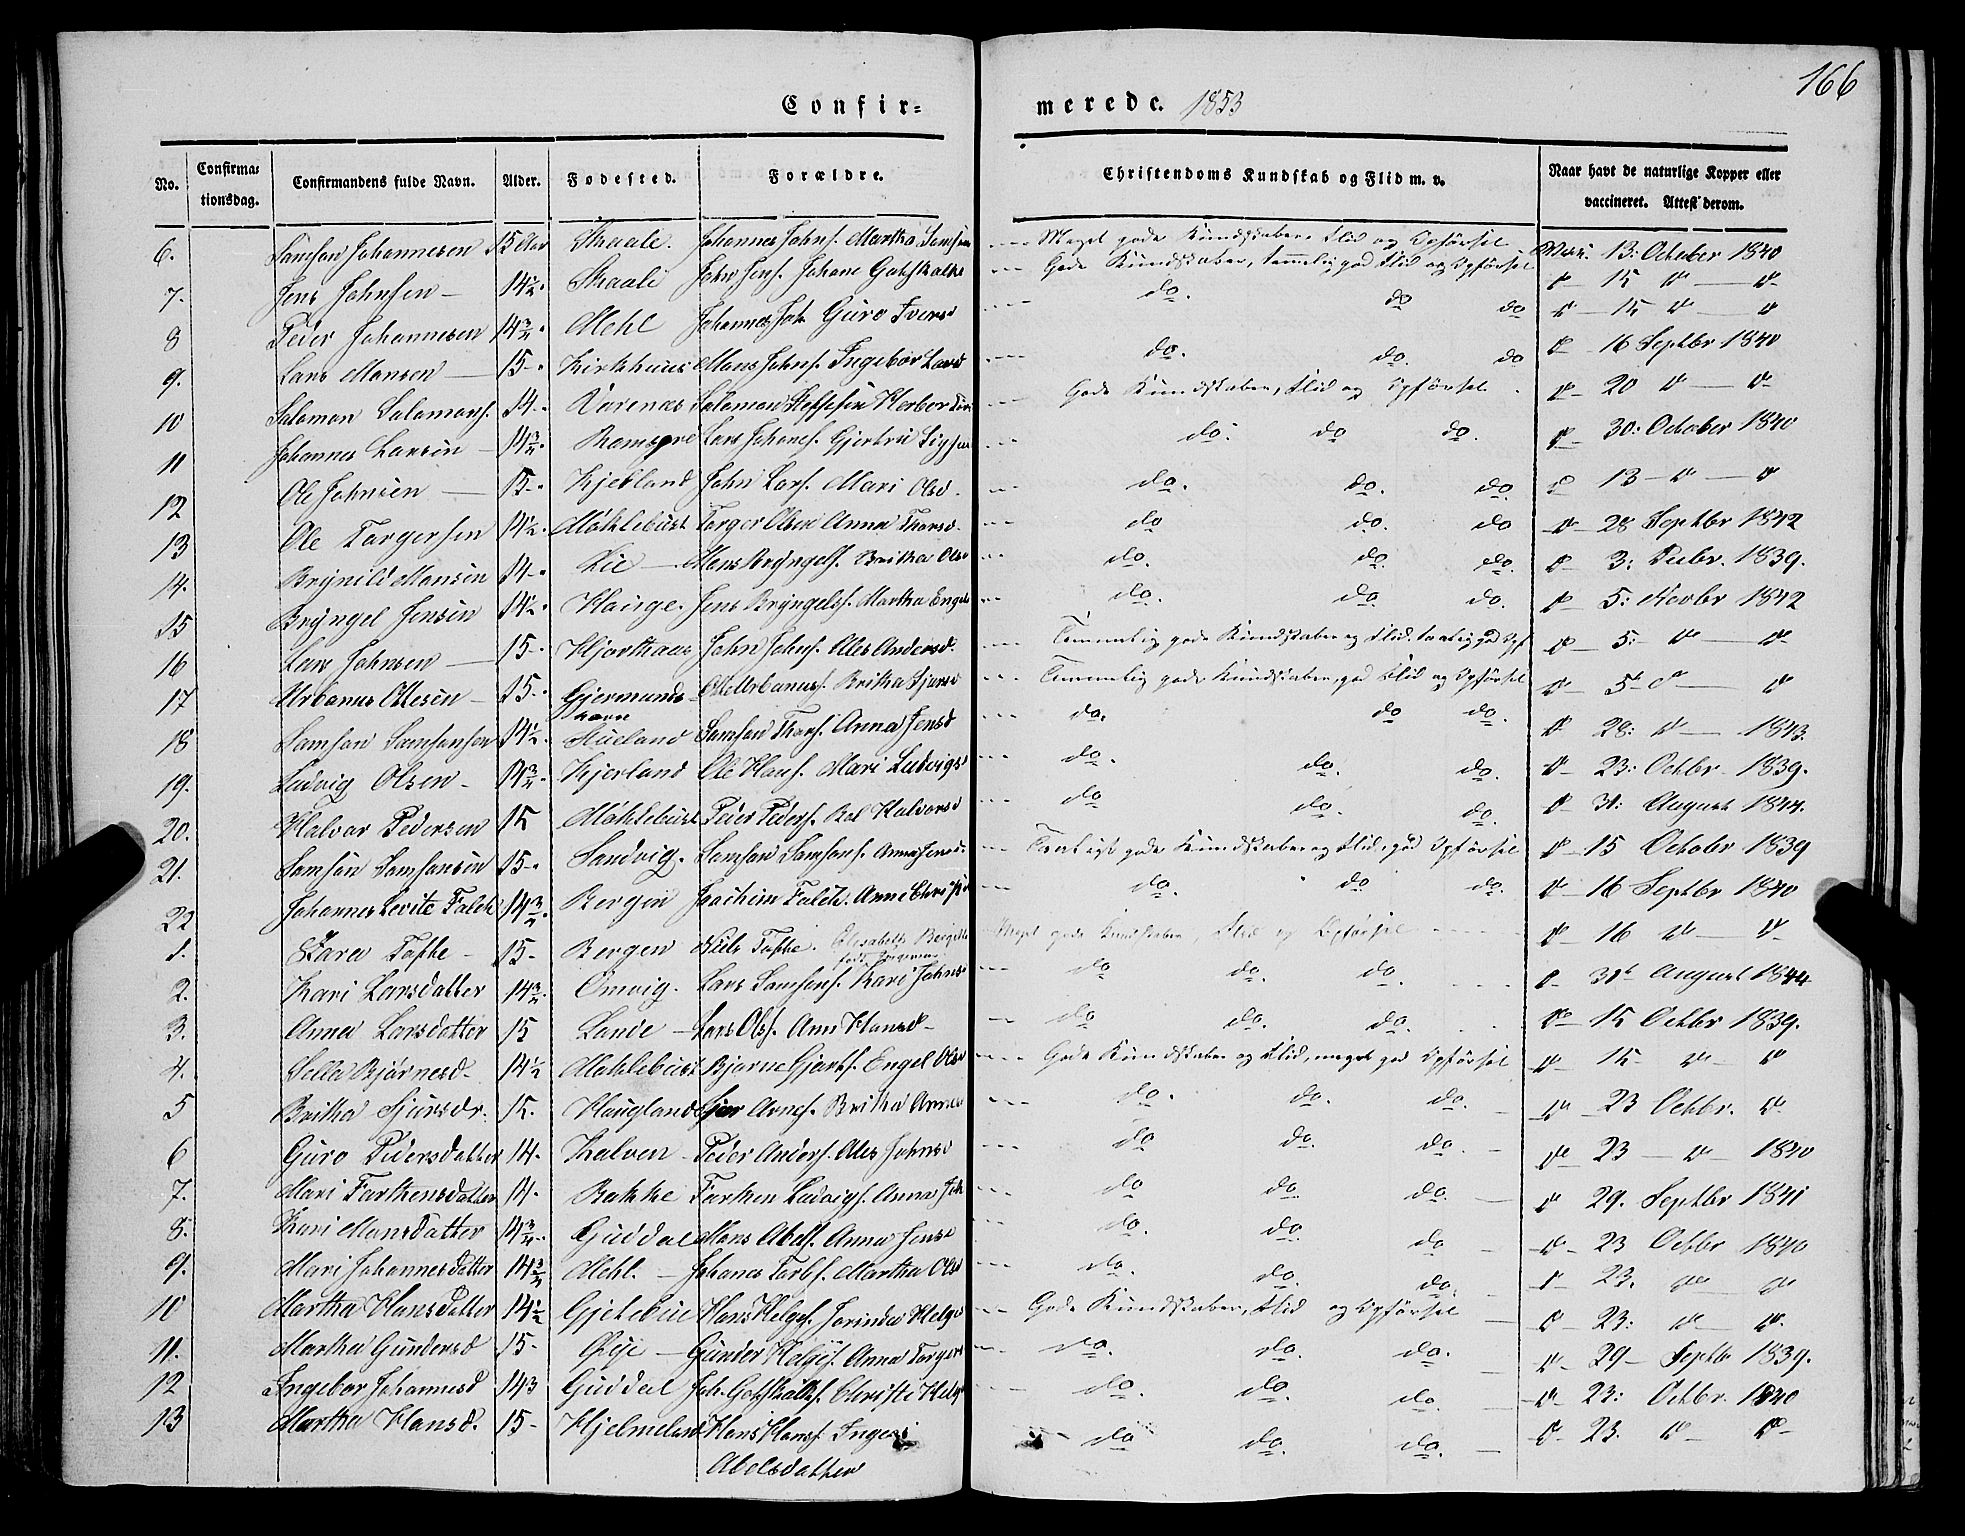 166
Confir= merede. 1853
No. Confirmationsdag. Confirmandens fulde Navn. Alder. Fødested. Forældre. Christendoms Kundskab og Flid m. v. Naar havt de naturlige Kopper eller vaccineret. Attest derom.
6. Samson Johannesen 15 Aar Skaale. Johannes Johns. Martha Samsons Meget gode Kundskaber Flid og Opførsel 13: October 1840
7. Jens Johnsen 14½. Skaale John Jens. Johane Gotskalks Gode Kundskaber, temmelig god Flid og Opførsel 15 do — do
8 Peder Johannesen 14¾. Mehl Johannes Joh. Guro Iversd do. do do 15 do — do
9. Lars Monsen 15-. Kirkhuus Mons Johns. Ingebor Larsd do. do. do 16 Septbr 1840
10 Salomon Salomons. 14-. Værenæs Salomon Gode Kundskaber, Flid og Opførsel 20 do — do
11 Johannes Larsen 14¾. Lars Johanes. Gjertru do. do do. 30: October 1840
12 Ole Johnsen 15-. Kjebland John Lars. Mari Olsd. do. do. do 13 — do — do
13 Ole Torgersen 14½. Møhlebust Torger Olsen Anna Thorsd. do do. do 28 Septbr 1842
14. Brynild Monsen 14-. Lie Mons Bryngels. Britha Olsd do. do do. 3: Decbr. 1839.
15 Bryngel Jensen 14½. Hauge. Jens Bryngels. Martha Engels do. do do. 5: Novbr 1842
16 Lars Johnsen 15-. Hjorthaas John Johns. Ales Andersd. Temmelig gode Kundskaber og Flid. 5: do — do
17 Urbanus Ottesen 15-. Gjermundshavn Otte Urbanus. Britha Sjursd Temmelig gode Kundskaber, god Flid og Opførsel 5 do — do
18 Samson Samsonsen 14½. Hueland Samson Thors. Anna Jensd do. do do. 28: do — 1843.
19. Ludvig Olsen 14¾. Kjerland Ole Hans. Mari Ludvigsd do. do. do. 23: Octbr. 1839.
20. Halvor Pedersen 15 Møhlebust Peder Peders. Halvorsd do do. do. 31: August 1844.
21. Samson Samsonsen 15-. Sandvig. Samson Samsons. Anna Jensd. gode Kundskaber og Flid, god Opførsel 15 Octobr 1839
22 Johannes Levite Falch 14¾. Bergen Joachim Falch. Anne do. do do. 16 Septbr 1840
1. Zara 15- Bergen Niels Elisabeth Meget gode Kundskaber, Flid og Opførsel 16 do — do
2. Kari Larsdatter 14¾. Omvig. Lars Samsons. Kari Johnsd do do. do. 31t August 1844
3. Anna Larsdatter 15 Lande Lars Ols. Ann Hansd- do do. do. 15 Octbr 1839.
4. Sella Bjørnesd- 14½ Møhlebust Bjørne Gjerts. Engel Olsd Gode Kundskaber og Flid, meget god Opførsel 15 do — do
5 Britha Sjursdr. 15. Haugland Sjur Arnes. Britha do. do. do. 23 Octbr. do
6 Guro Pedersdatter 14. Kalven Peder Anders. Ales Johnsd do do do. 23 — do — 1840
7. Mari Torkensdatter 14. Bakke Torken Ludvigs. Anna Joh do do. do. 29. Septbr 1841
8. Kari Monsdatter 14¾. Guddal Mons Abels. Anna Jensd do. do. do 23 Octbr 1840
9. Mari Johannesdatter 14¾ Mehl. Johanes Torb. Martha Olsd do. do. do. 23. do do
10 Martha Hansdatter 14½ Gjetebue Hans Helges. Jorinda Helgs Gode Kundskaber, Flid og Opførsel 23: do — do.
11. Martha Gundersd 15- Øije Gunder Helges. Anna Torgers do. do. do. 29 — Septb 1839.
12 Ingebor Johannesd 14¾ Guddal Joh. Gotskalks. Christi Helg do do. do. 23: Octbr. 1840
13 Martha Hansd. 15- Hjelmeland Hans Hans. Inger do do. do. 23. do — do
Abelsdatter